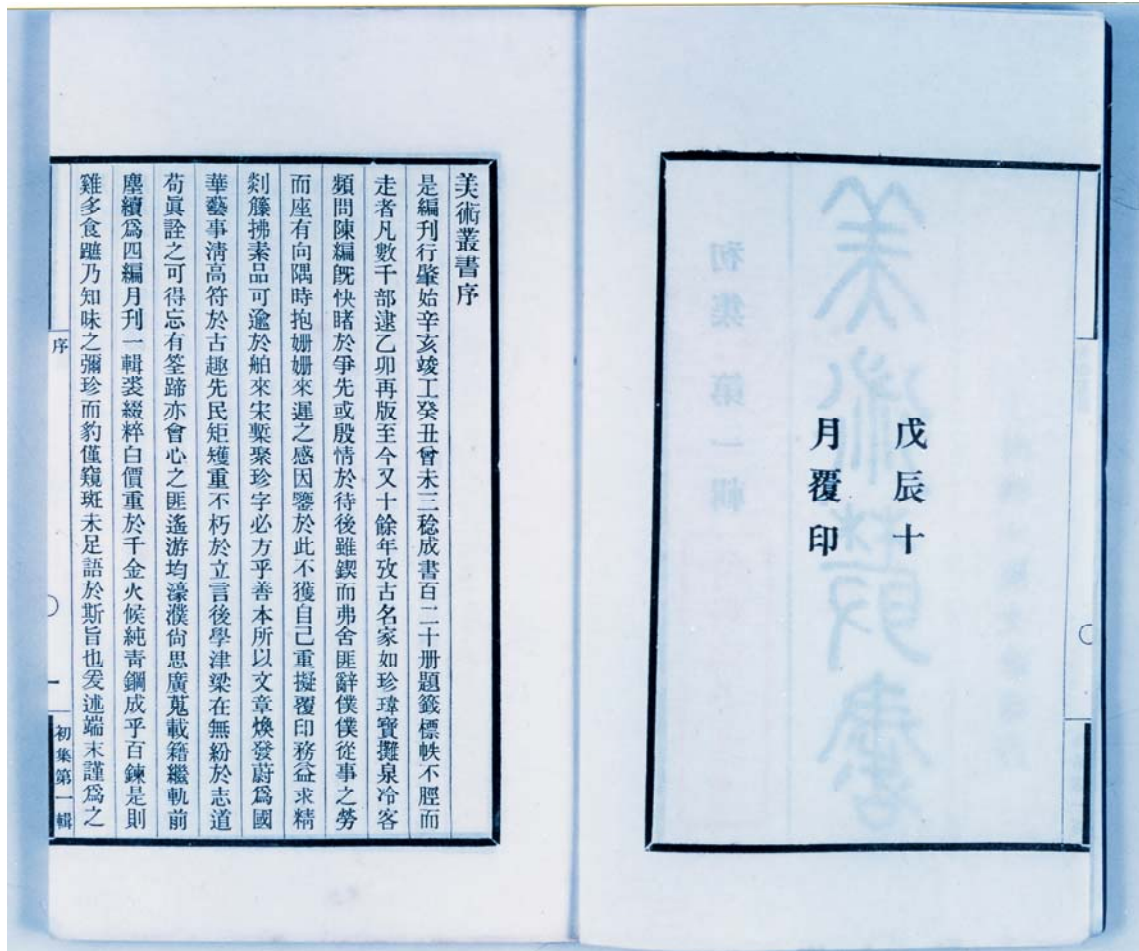 戊辰十
月覆印
美術叢書序
是編刊行肇始辛亥竣工癸丑曾未三稔成書百二十册題籤標帙不脛而
走者凡數千部逮乙卯再版至今又十餘年攷古名家如珍瑋寶攤泉冷客
頻問陳編旣快睹於爭先或殷情於待後雖鍥而弗舍匪辭僕僕從事之勞
而座有向隅時抱姍姍來遲之感因鑒於此不獲自己重擬覆印務益求精
剡籐拂素品可逾於舶來宋槧聚珍字必方乎善本所以文章煥發蔚爲國
華藝事淸高符於古趣先民矩矱重不朽於立言後學津梁在無紛於志道
苟眞詮之可得忘有筌蹄亦會心之匪遙游均濠濮尙思廣蒐載籍繼軌前
塵續爲四編月刊一輯裘綴粹白價重於千金火候純靑鋼成乎百鍊是則
雞多食蹠乃知味之彌珍而豹僅窺斑未足語於斯旨也爰述端末謹爲之
序
一
初集第一輯